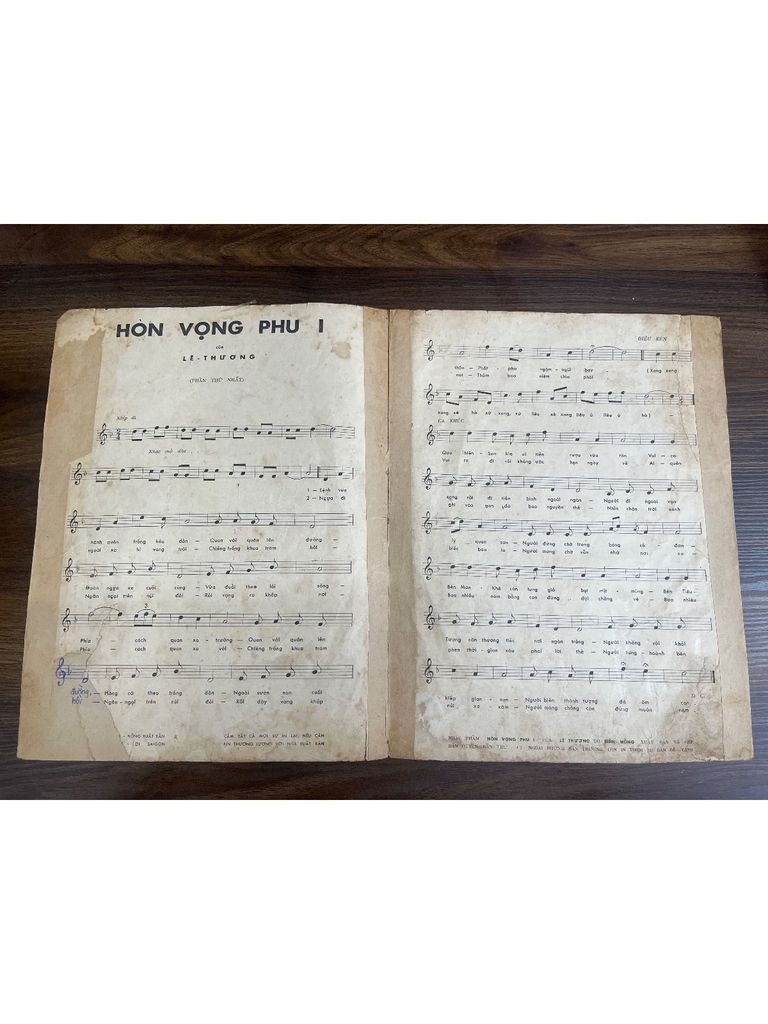 HÒN VỌNG PHU I
của
LÊ-THƯƠNG
(PHẦN THỨ NHẤT)
Nhịp đi
Nhạc mở đầu
1 - Lệnh vua
2 - Ngựa đi
hành quân trống kêu dồn - Quan với quân lên đường -
ngoài xa kĩ vang trời - Chiêng trống khua trăm hồi -
Đoàn ngựa xe cuối cùng - Vừa đuổi theo lối sông -
Ngần ngại trên núi đồi - Rồi vọng ra khắp nơi -
Phía cách quan xa - trường - Quan với quân lên
Phía cách quan xa vời - Chiêng trống khua trăm
đường, - Hàng cờ theo trống dồn - Ngoài sườn non cuối
hồi - Ngần - ngại trên núi đồi - Rồi dậy vang khắp
- HỒNG XUẤT BẢN
SAIGON
CẤM TẤT CẢ MỌI SỰ IN LẠI, NẾU CẦN
XIN THƯƠNG LƯỢNG VỚI NHÀ XUẤT BẢN
ĐIỆU KÈN
thôn - Phất - phơ ngậm - ngùi bay - (Xang xang
nơi - Thắm bao niềm chia phôi
xang xê hò xừ xang, xừ liêu xê xang liêu ú liêu ú hò) -
CA KHÚC
Qua Thiên - Sơn kìa ai tiễn rượu vừa tàn Vui ca
Vui ra đi rồi không ước hẹn ngày về Ai quên
xang rồi đi tiến binh ngoài ngàn - Người đi ngoài vạn
ghi vào gan đá bao nguyện thề Nhìn chân trời xanh
lý quan san - Người đứng chờ trong bóng cô đơn
biếc bao la - Người mong chờ vẫn nhớ nơi xa
Bên Man - Khê còn tung gió bụi mịt - mùng - Bên Tiêu
Bao nhiêu năm bồng con đứng đợi chồng về Bao nhiêu
Tương còn thương tiếc nơi ngàn trùng - Người không rời khỏi
phen thời - gian xóa phai lời thề - Người tung - hoành bên
kiếp gian - nan - Người biến thành tượng đá ôm con
núi xa - xăm - Người mong chồng còn đứng muôn năm
D C
NHẠC PHẨM HÒN VỌNG PHU I CỦA LÊ THƯƠNG DO DIÊN HỒNG XUẤT BẢN